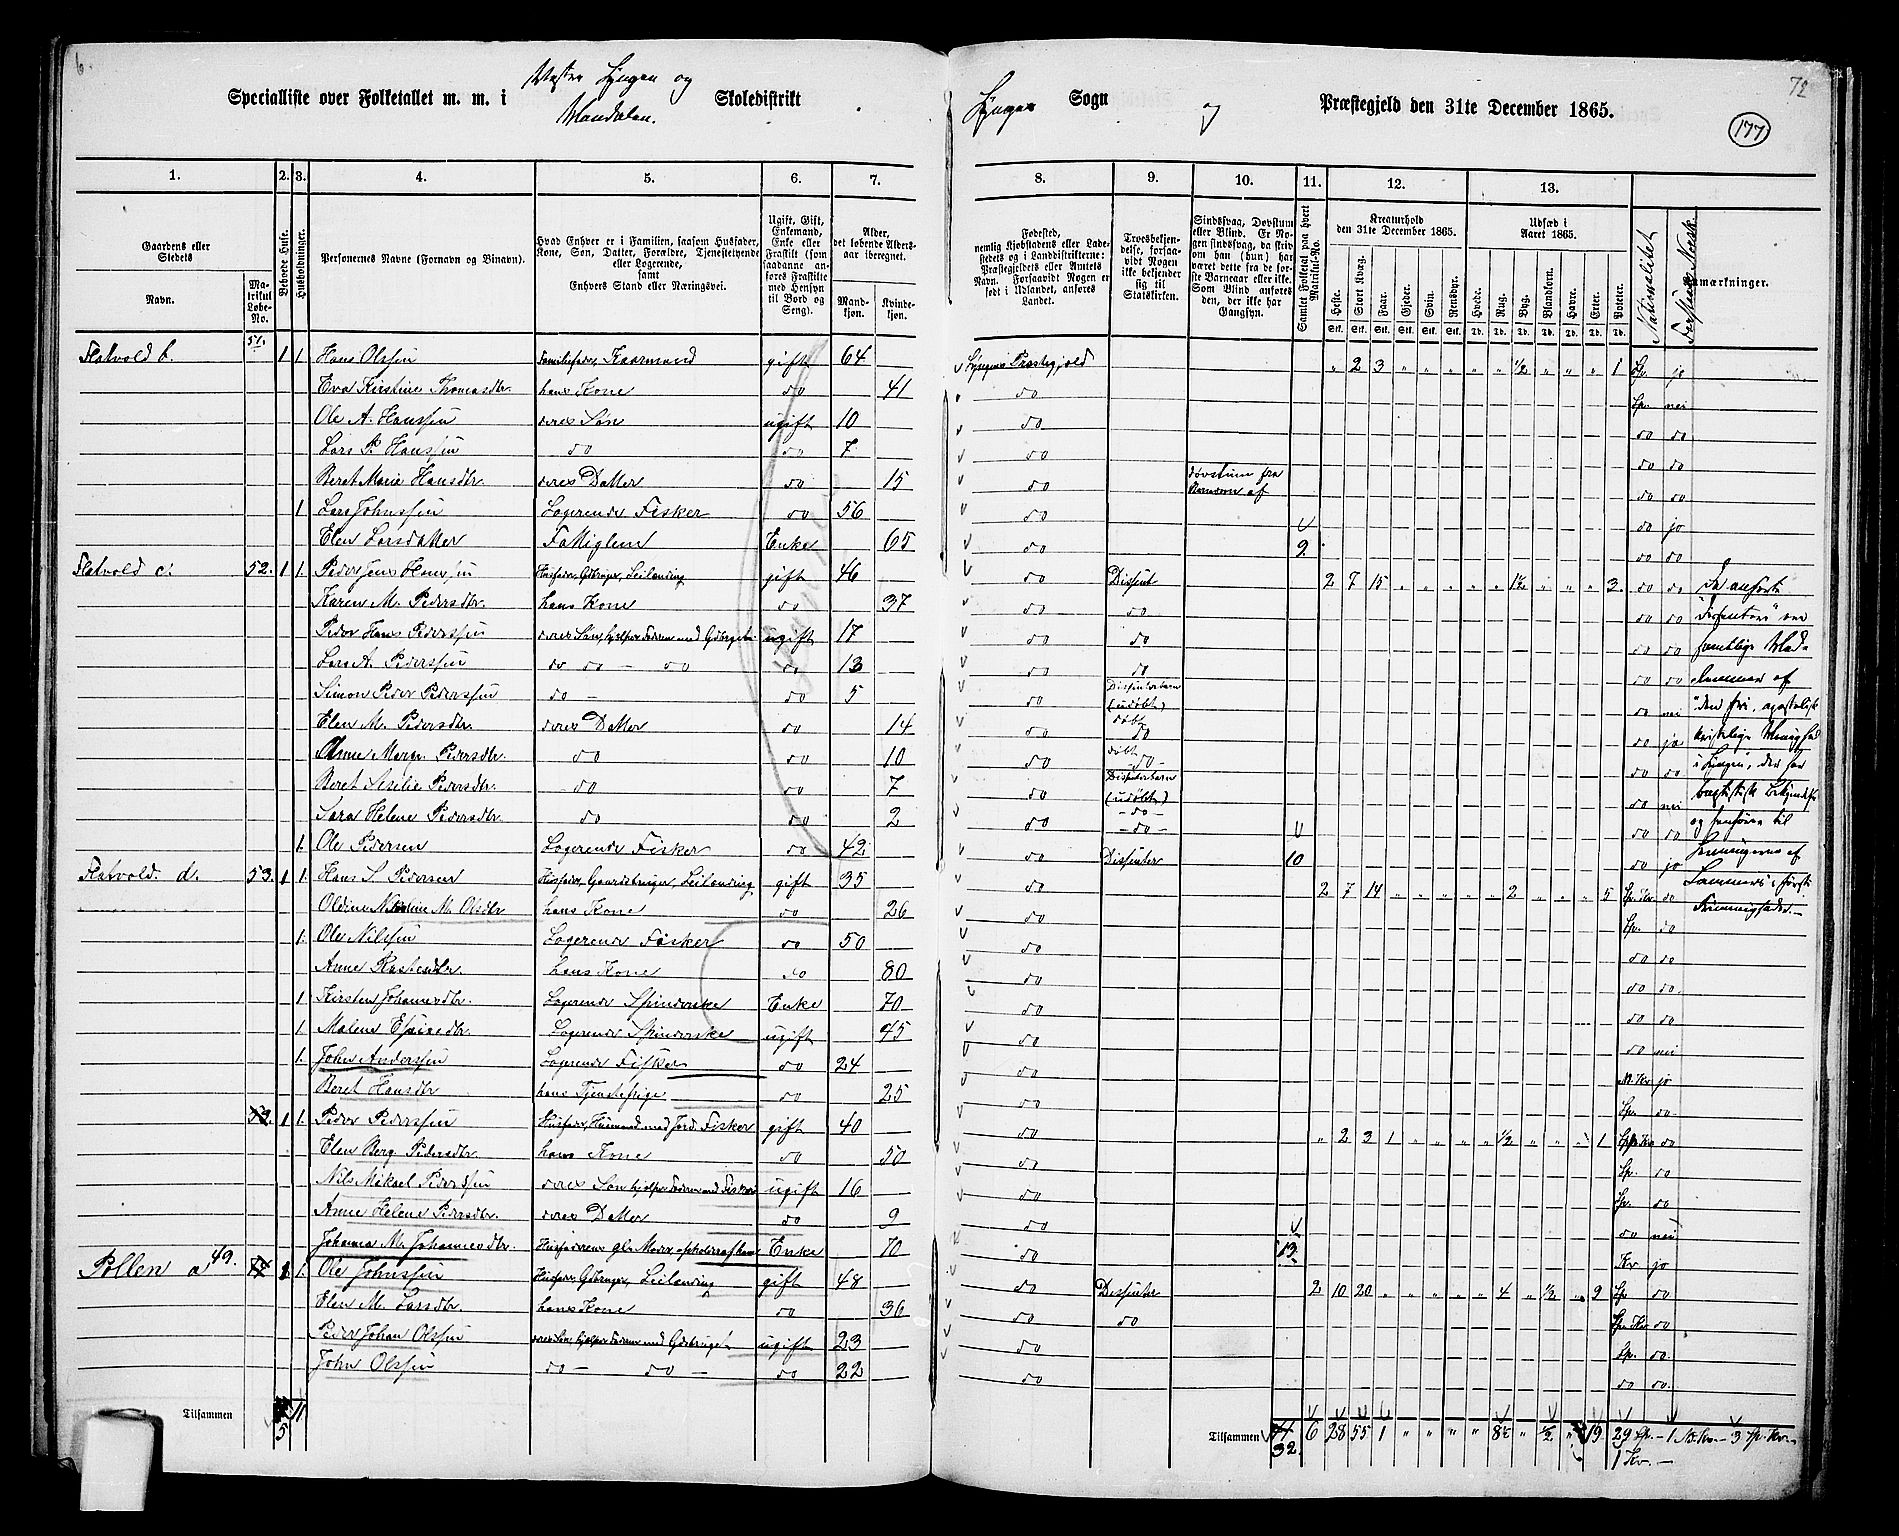 6.
Specialliste over Folketallet m. m. i Vestre Lyngen og Mandalen. Skoledistrikt
Lyngens Sogn og Præstegjeld den 31te December 1865.
72
177
1. 2. 3. 4. 5. 6. 7. 8. 9. 10. 11. 12. 13.
Gaardens eller Stedets
Navn.
Matrikul Løbe-No.
Beboede Huse.
Husholdninger.
Personernes Navne (Fornavn og Binavn).
Hvad Enhver er i Familien, saasom Husfader, Kone, Søn, Datter, Forældre, Tjenestetyende eller Logerende, samt Enhvers Stand eller Næringsvei.
Ugift, Gift, Enkemand, Enke eller Fraskilt (som saadanne anføres Fraskilte med Hensyn til Bord og Seng).
Alder, det løbende Aldersaar iberegnet.
Mandkjøn. Kvindekjøn.
Fødested, nemlig Kjøbstadens eller Ladestedets og i Landdistrikterne: Præstegjeldets eller Amtets Navn. Forsaavidt Nogen er født i Udlandet, anføres Landet.
Troesbekjendelse, forsaavidt Nogen ikke bekjender sig til Statskirken.
Sindssvag, Døvstum eller Blind. Er Nogen sindssvag, da skrives om han (hun) har været dette fra de første Barneaar eller ikke. Som Blind anføres den, der ikke har Gangsyn.
Samlet Folketal paa hvert Matrikul-No.
Kreaturhold den 31te December 1865.
Heste. Stort Kvæg. Faar. Gjeder. Svin. Rensdyr.
Udsæd i Aaret 1865.
Hvede. Rug. Byg. Blandkorn. Havre. Erter. Poteter.
Nationalitet
Forstaar Norsk
Anmærkninger.
Flatvold b. 51. 1 1 Hans Olssen Familiefader, Kaarmand gift 64 Lyngens Præstegjeld " 2 3 " " " " " ½ " " " 1 Lp. jo
Eva Kirstine Thomasdtr. hans Kone do 41 do Lp. nei
Ole A. Hanssen deres Søn ugift 10 do do do
Lars P. Hanssen do do 7 do do do
Beret Maria Hansdtr. deres Datter do 15 do døvstum fra Barndom af do do
1 Lars Johnssen Logerende Fisker do 56 do do jo
Elen Larsdatter Fattiglem Enke 65 do 9. do do
Flatvold c. 52. 1 1. Peder Jens Hanssen Husfader, Gdbruger, Leilending gift 46 do Dissent 2 7 15 " " " " " 1½ " " " 3. do do De anførte
Karen M. Pedersdtr. hans Kone do 37 do do do do "Dissentere" ere
Peder Hans Pederssen deres Søn, hjelper Faderen med Gdbruget ugift 17 do do do do samtlige Med-
Lars A. Pederssen do do - do do 13 do do do do lemmer af
Simon Peder Pederssen do - do 5 do Dissenterbarn (udøbt) do nei "den fri, apostolisk
Elen M. Pedersdtr. deres Datter do 14 do døbt do do jo kristelige Menighed
Anne Marg. Pedersdtr. do do 10 do døbt - do - do do i Lyngen, der har
Beret Serelie Pedersdtr. do do 7 do Dissenterbarn (udøbt) do nei baptistisk Bekjendelse
Sara Helene Pedersdtr. do do 2 do - do - do do og henhører til
1. Ole Pedersen Logerende Fisker do 42 do Dissenter 10 do jo
Flatvold d. 53. 1 1. Hans S. Pedersen Husfader, Gaardbruger, Leilending gift 35 do 2 7 14 " " " " " 2 " " " 5 Lp. Kv. do
Oldine M. Olsdtr hans Kone do 26 do Lp. do
1. Ole Nilssen Logerende Fisker do 50 do do do
Anne hans Kone do 80 do do do.
1 Kirsten Johannesdtr. Logerende Spinderske Enke 70 do do do
1 Malene Logerende Spinderske ugift 45 do do nei
1. John Anderssen Logerende Fisker do 24 do N. Kv jo
Beret Hansdtr hans Tjenestepige do 25 do Lp. do.
53. 1 1. Peder Pederssen Husfader, Husmand med Jord. Fisker gift 40 do " 2 3 1 " " " " ½ " " " 1 do
Elen Berg. Pedersdtr. hans Kone do 50 do Lp. do
Nils Mikael Pederssen deres Søn hjelper Faderen med Fiskeri ugift 16 do Lp. do
Anne Helene Pedersdtr. deres Datter do 9 do do nei
Johanna M. Johannesdtr. Husfaderens gl. Moder, Enke 70 do 13. Kv jo
Pollen a 49. 1 1. Ole Johnssen Husfader Gdbruger, Leilending gift 48 do Dissenter 2 10 20 " " " " " 4 " ½ " 9 Lp do
Elen M. Larsdtr. hans Kone do 36 do do Lp. Kv do
Peder Johan Olssen deres Søn, hjelper Faderen med Gdbruget ugift 23 do Lp. do.
John Olssen do - do - do 22 do do do.
Tilsammen 5 11
Tilsammen 32. 6 28 55 1 " " " " 8½ " ½ " 19 29 Lp. - 1 N. Kv. - 3 Lp. Kv. -
1 Kv. -